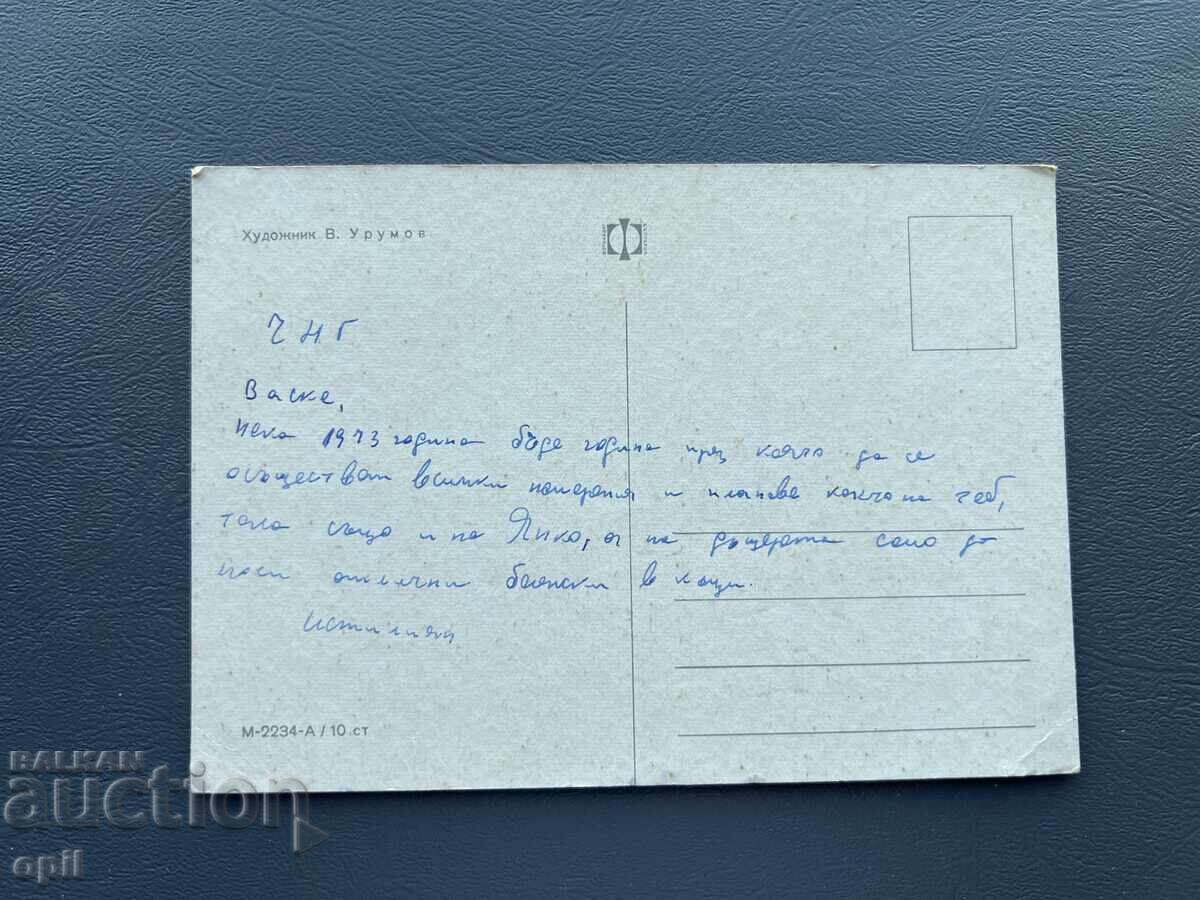 Художник В. Урумов
ЧНГ
Васке,
нека 1973 година бъде година през която да се
осъществят всички намерения и планове както на теб,
така също и на Янко, а на дъщерята само да
носи отлични бележки в къщи.
М-2234-А / 10 ст
BALKAN
auction
opil